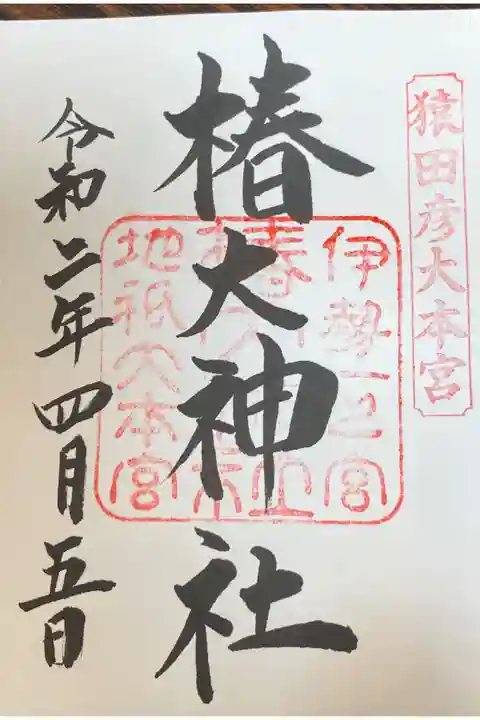 猿田彦大本宮
椿大神社
伊勢一之宮
地祇大本宮
令和二年四月五日